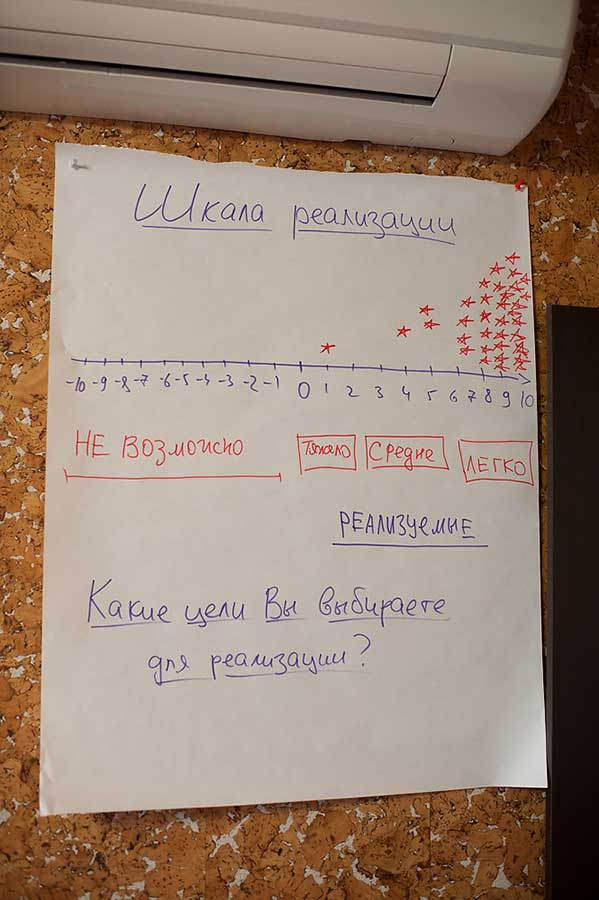 Шкала реализации
-10 -9 -8 -7 -6 -5 -4 -3 -2 -1 0 1 2 3 4 5 6 7 8 9 10
НЕ ВОЗМОЖНО Тяжело Средне ЛЕГКО
РЕАЛИЗУЕМЫЕ
Какие цели Вы выбираете
для реализации?